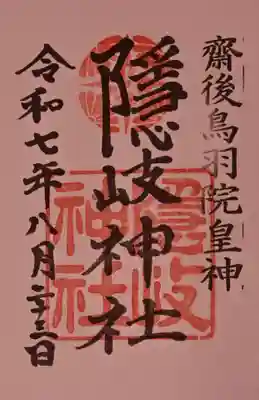 齋後鳥羽院皇神
隠岐神社
隠岐
神社
令和七年八月二十三日